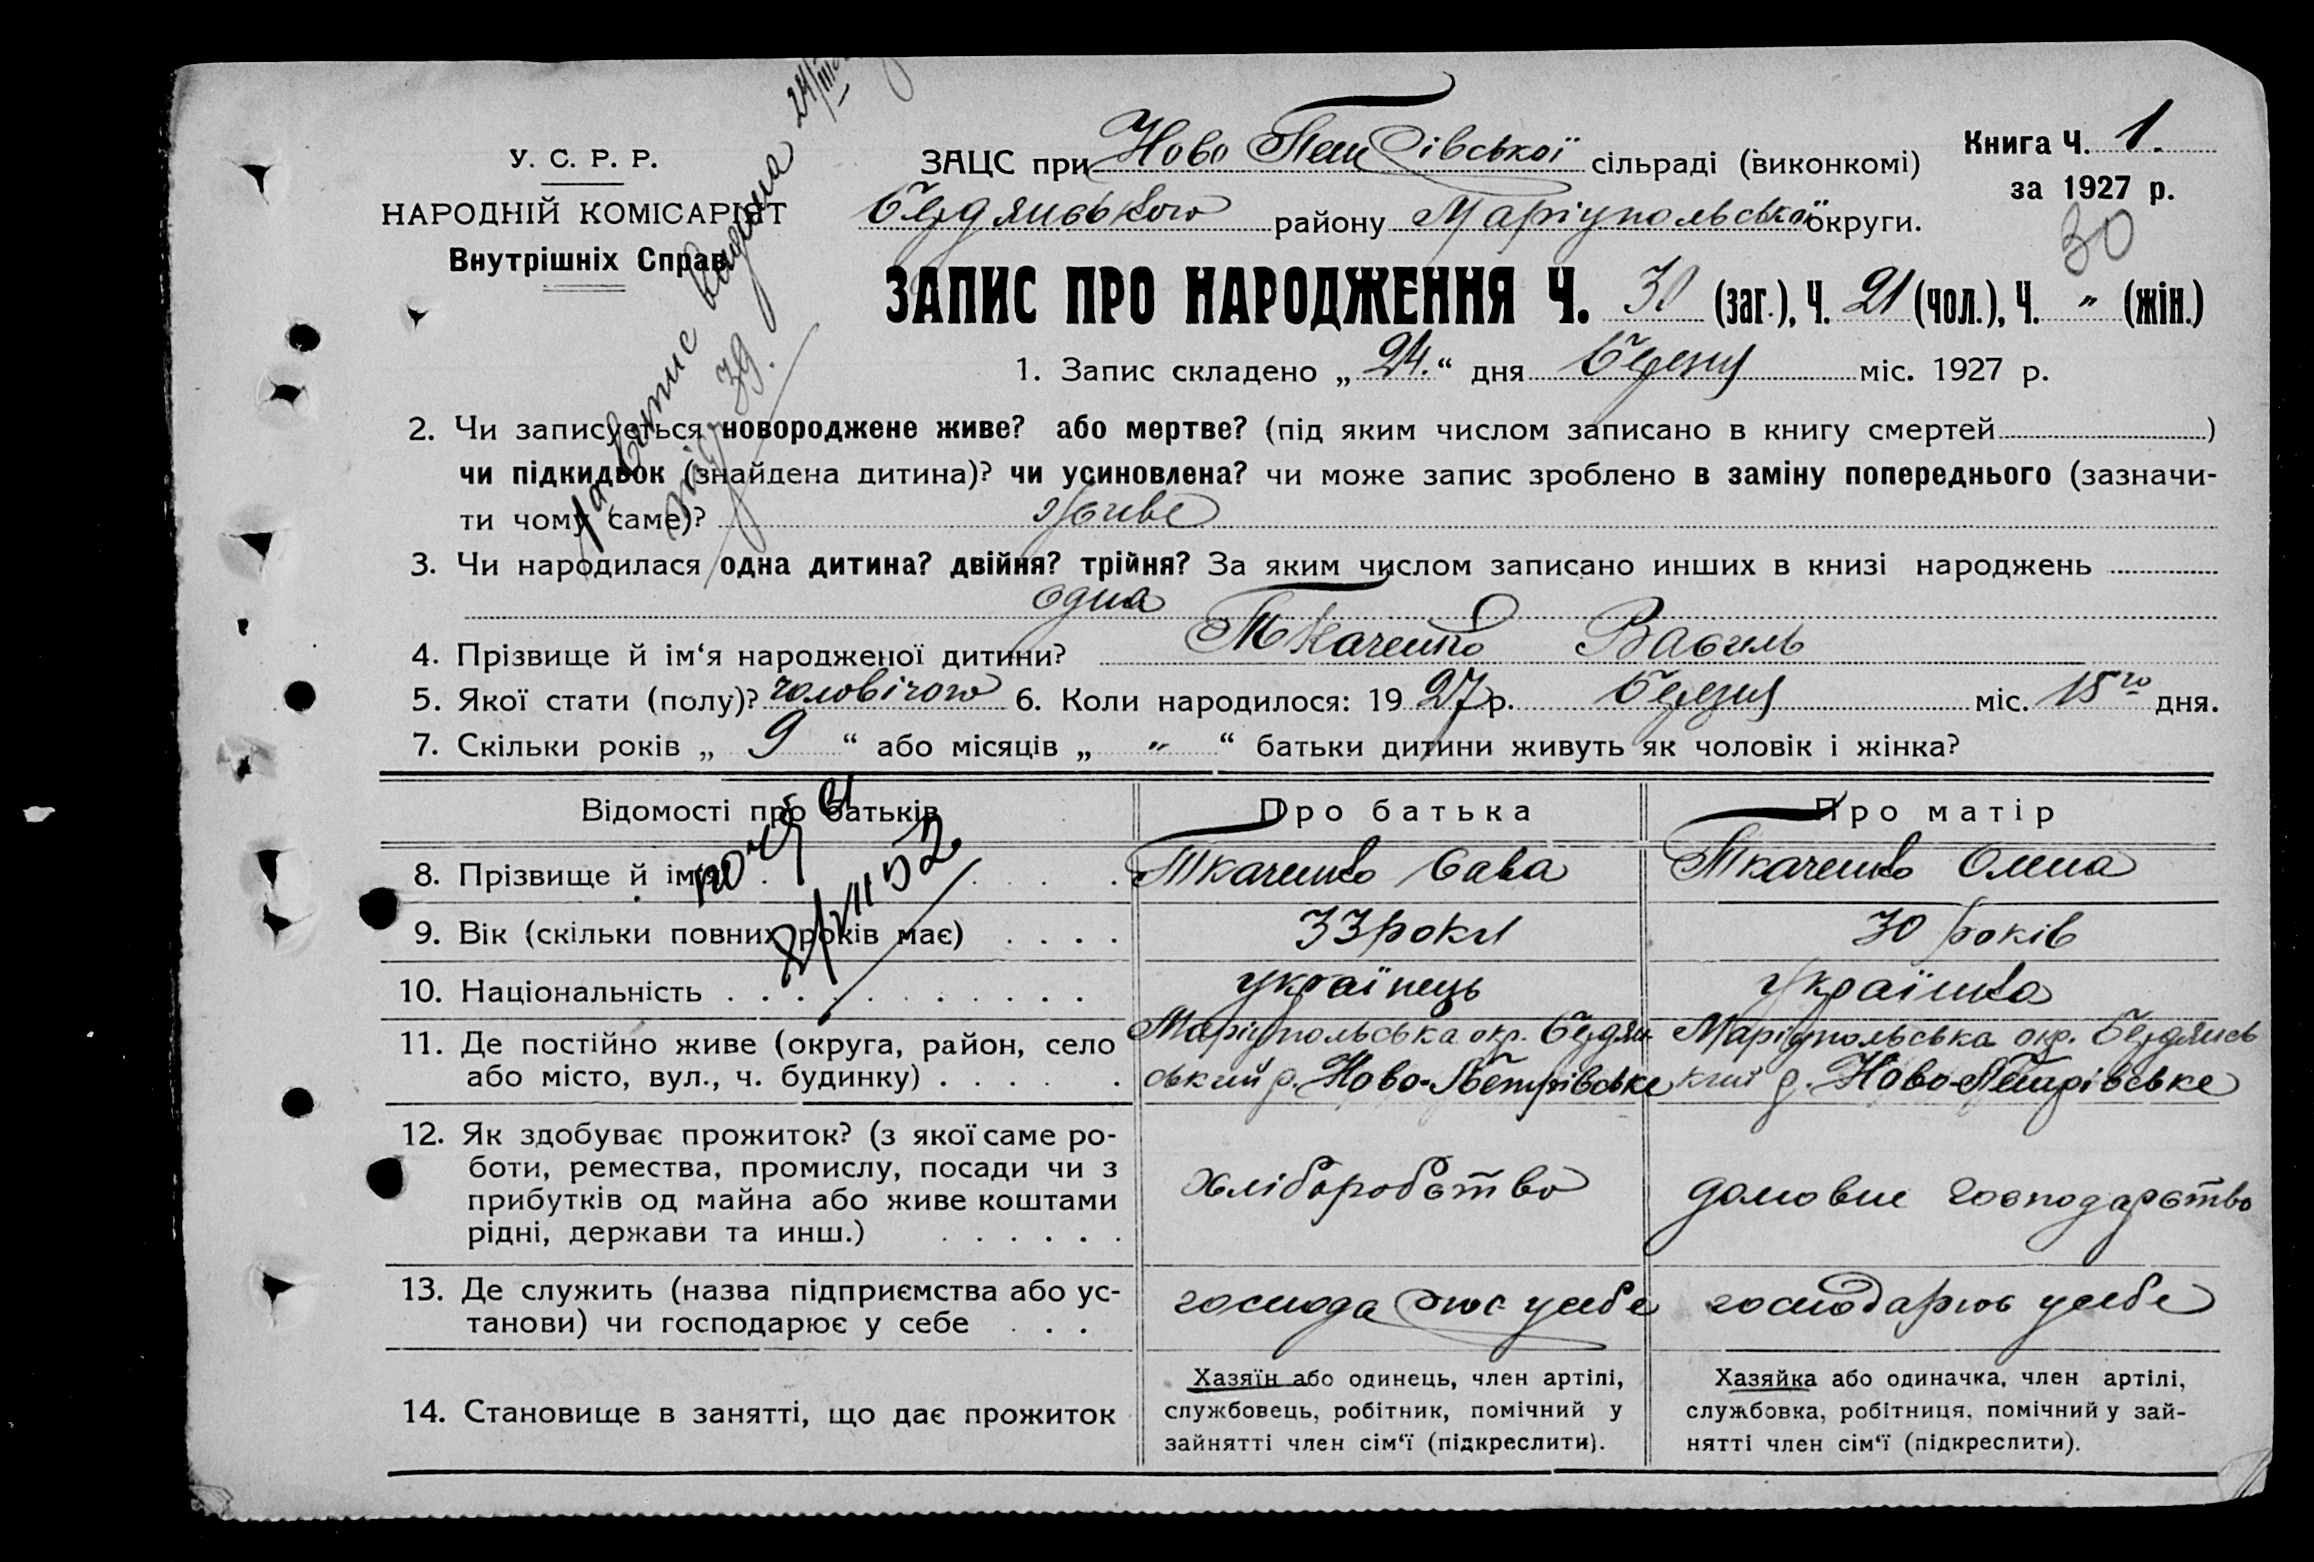 У. С. Р. Р.
НАРОДНІЙ КОМІСАРІЯТ
Внутрішніх Справ
ЗАЦС при Ново Петрівської сільраді (виконкомі)
Бердянського району Маріупольської округи.
Книга Ч. 1.
за 1927 р.
30
ЗАПИС ПРО НАРОДЖЕННЯ Ч. 30 (заг.), Ч. 21 (чол.), Ч. " (жін.)
1. Запис складено „ 24. “ дня березня міс. 1927 р.
2. Чи записується новороджене живе? або мертве? (під яким числом записано в книгу смертей )
чи підкидьок (знайдена дитина)? чи усиновлена? чи може запис зроблено в заміну попереднього (зазначи-
ти чому саме)? живе
3. Чи народилася одна дитина? двійня? трійня? За яким числом записано инших в книзі народжень
одна
4. Прізвище й ім‘я народженої дитини? Ткаченко Василь
5. Якої стати (полу)? чоловічого 6. Коли народилося: 19 27 р. березня міс. 15го дня.
7. Скільки років „ 9 “ або місяців „ " “ батьки дитини живуть як чоловік і жінка?
Відомості про батьків Про батька Про матір
8. Прізвище й ім‘я Ткаченко Сава Ткаченко Олена
9. Вік (скільки повних років має) 33 роки 30 років
10. Національність українець українка
11. Де постійно живе (округа, район, село Маріупольська окр. Бердян- Маріупольська окр. Бердянсь
або місто, вул., ч. будинку) ський р. Ново-Петрівське кий р. Ново-Петрівське
12. Як здобуває прожиток? (з якої саме ро-
боти, ремества, промислу, посади чи з
прибутків од майна або живе коштами
рідні, держави та инш.)
хліборобство домовне господарство
13. Де служить (назва підприємства або ус-
танови) чи господарює у себе
господарює у себе господарює у себе
14. Становище в занятті, що дає прожиток
Хазяїн або одинець, член артілі,
службовець, робітник, помічний у
зайнятті член сім‘ї (підкреслити).
Хазяйка або одиначка, член артілі,
службовка, робітниця, помічний у зай-
нятті член сім‘ї (підкреслити).